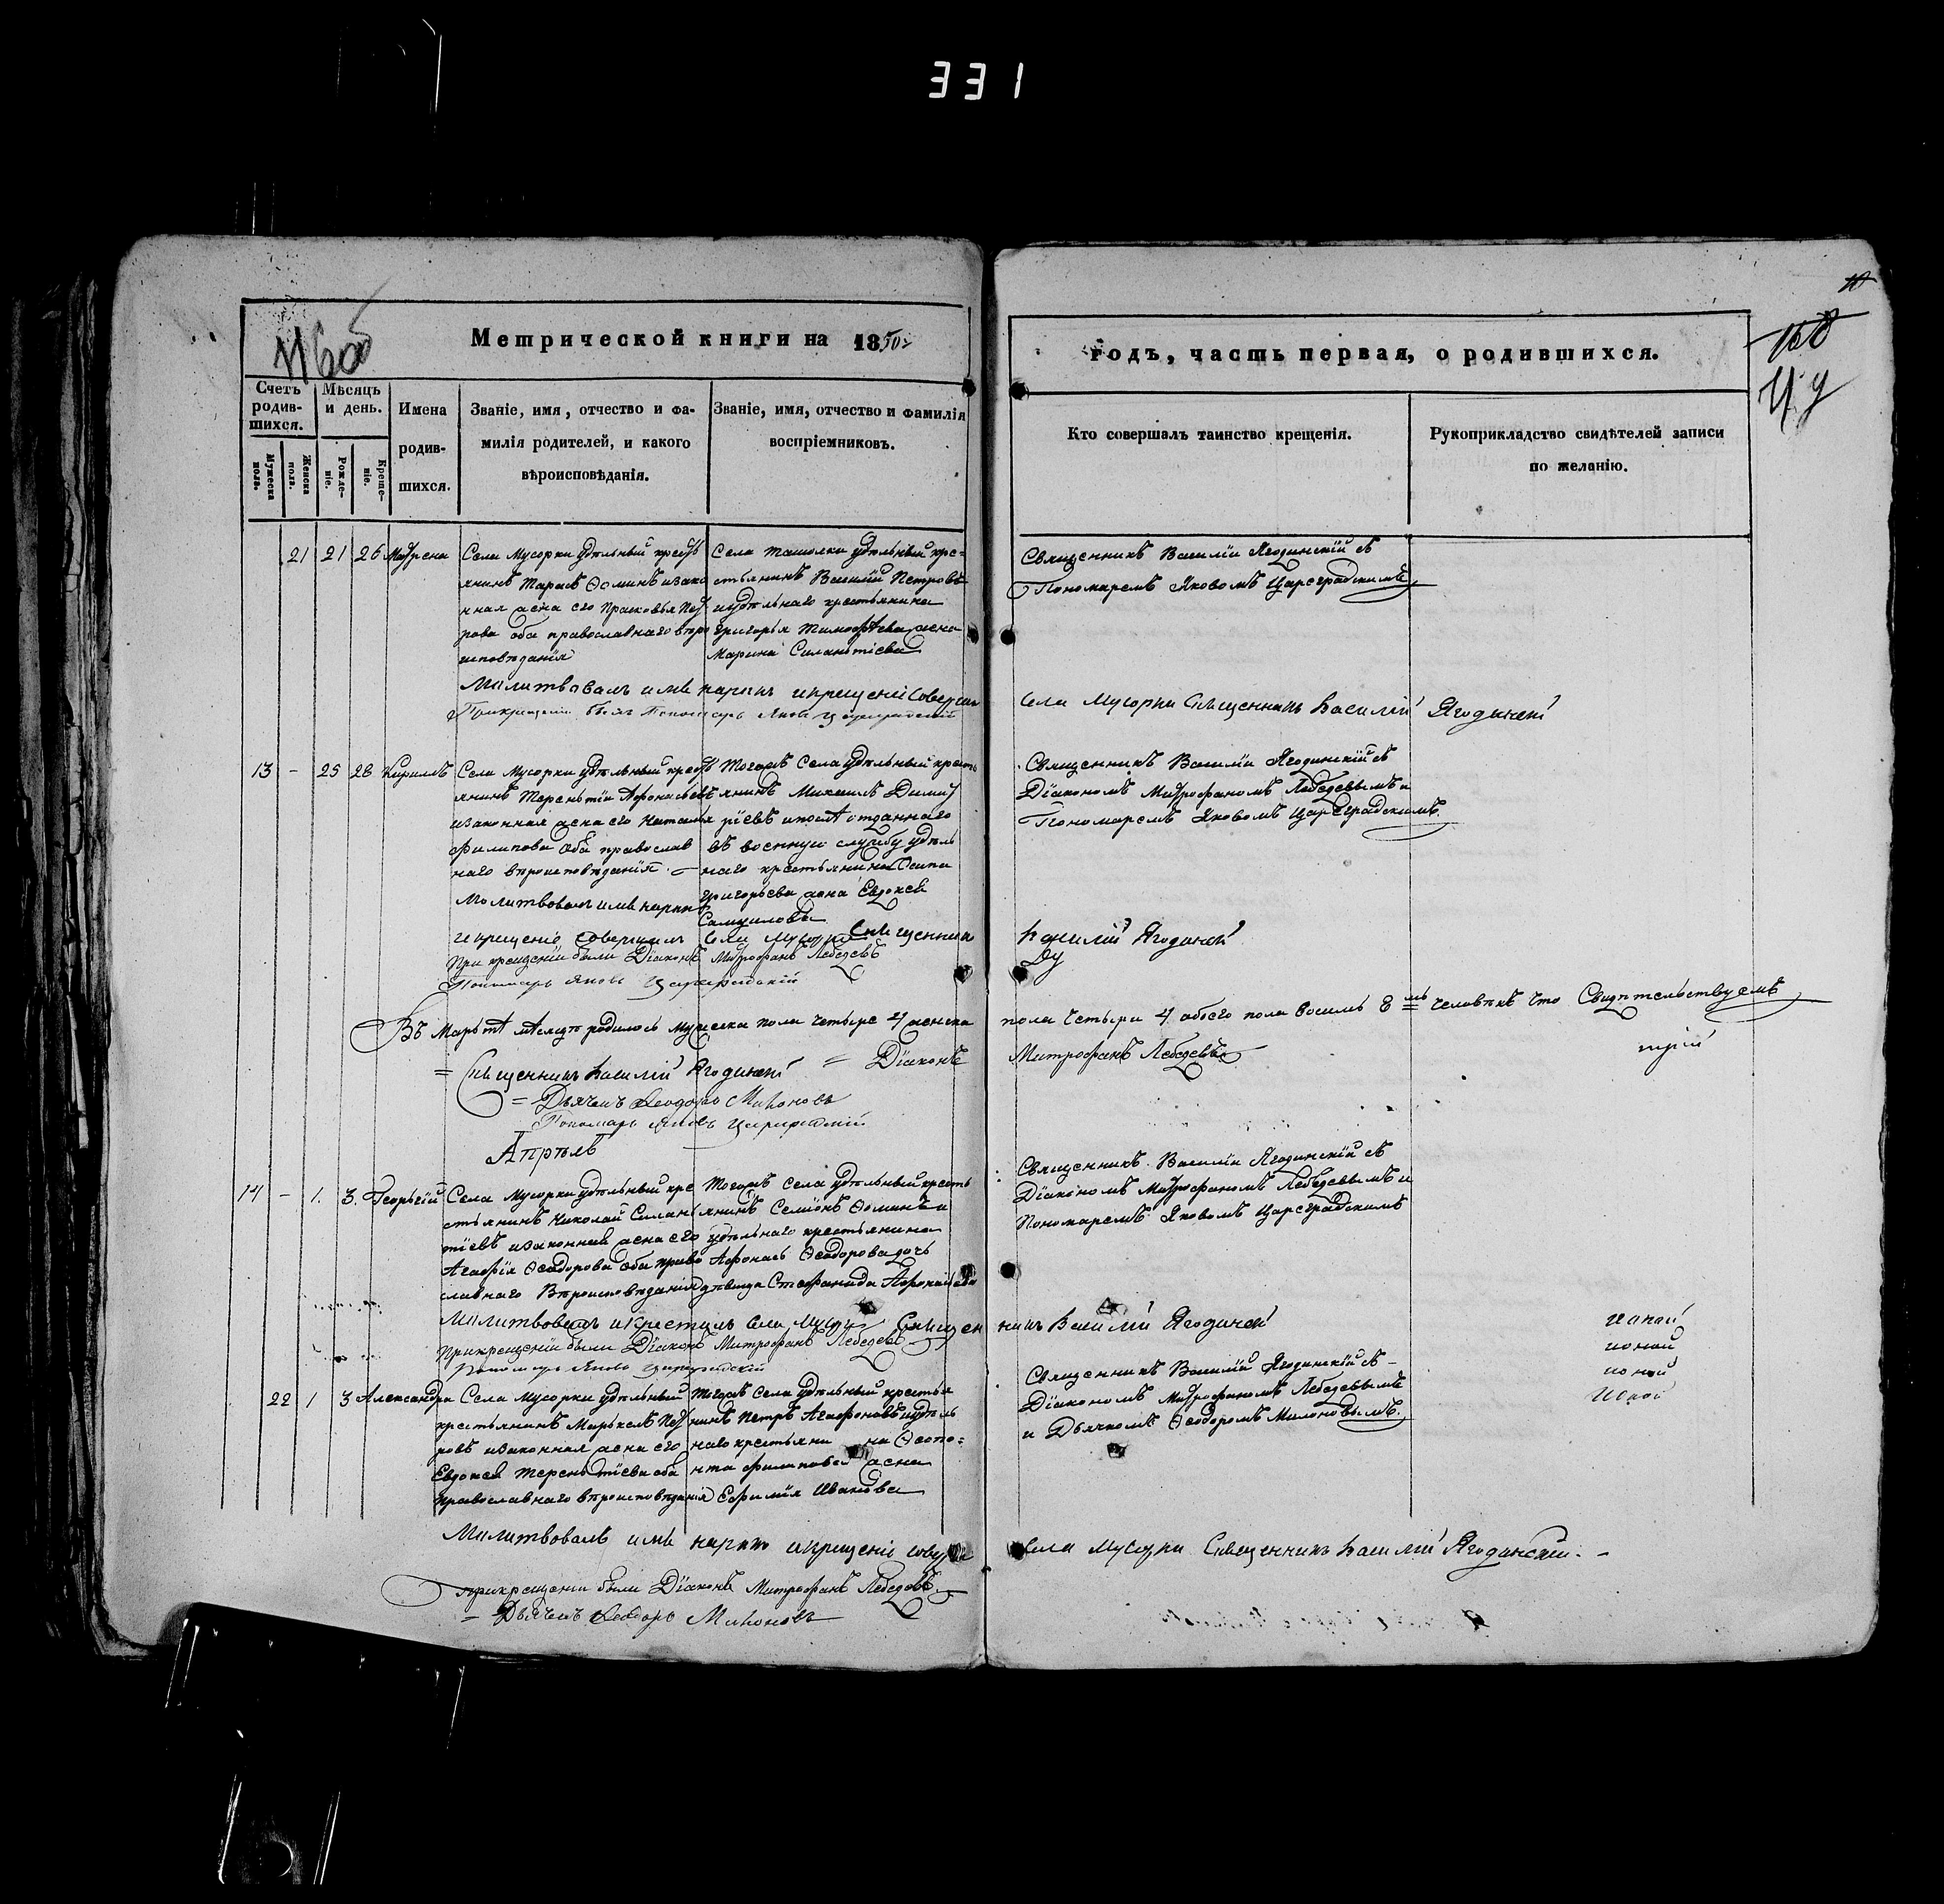 331
Метрической книги на 1850
годъ, часть первая, о родившихся.
Счетъ родив-шихся.
Мѣсяцъ и день.
Имена родив-шихся.
Званіе, имя, отчество и фа-
милія родителей, и какого
вѣроисповѣданія.
Званіе, имя, отчество и фамилія
воспріемниковъ.
Кто совершалъ таинство крещенія.
Рукоприкладство свидѣтелей записи
по желанію.
Мужеска полъ.
Женска полъ.
Рожде-ніе.
Креще-ніе.
21 21 26 Маѵрена
Села Мусорки удѣльный крест
янинъ Тарасъ Ѳоминъ изако
нная жена его Прасковья Пет
рова оба православнаго вѣро
исповѣданія
Села Ташолки удѣльный кре=
стьянинъ Василій Петровъ
иудѣльнаго крестьянина
Григорья Тимофѣева жена
Марина Силантіева
Священникъ Василій Ягодинскій съ
Пономаремъ Яковомъ Цареградскимъ
Молитвовалъ имя нарекъ икрещеніе Совершилъ
Села Мусорки Священникъ Василій Ягодинскій
Прикрещеніи былъ Пономарь Яковъ Цареградскій
13 - 25 28 Кирилъ
Села Мусорки удѣльный крест
янинъ Терентій Афонасьевъ
изаконная жена его Наталья
Филипова Оба православ
наго вѣроисповѣданія
Тогожъ Села удѣльный кресть
янинъ Михаилъ Димит
ріевъ ипослѣ отданнаго
въ военную службу удѣль
наго крестьянина Осипа
Григорьева жена Евдокея
Самуилова
Священникъ Василій Ягодинскій съ
Діакономъ Митрофаномъ Лебедевымъ и
Пономаремъ Яковомъ Цареградскимъ.
Молитвовалъ имя нарекъ
икрещеніе Совершилъ Села Мусорки Священникъ
Василій Ягодинскій
При крещеніи были Діаконъ Митрофанъ Лебедевъ
Пономарь Яковъ Цареградскій
Въ Мартѣ мѣсяцѣ родилось мужеска пола четыре 4 женска
пола четыри 4 обоего пола восимь 8 мь человѣкъ что Свидѣтельствуемъ
Священникъ Василій Ягодинскій = Діаконъ
Митрофанъ Лебедевъ
= Дьячекъ Ѳеодоръ Милоновъ
Пономарь Яковъ Цареградскій
Апрѣль
14 - 1. 3. Георьгій
Села Мусорки удѣльный кре
стьянинъ Николай Силан
тіевъ изаконная жена его
Агафія Ѳеодорова Оба право
славнаго Вѣроисповѣданія
Тогожъ села удѣльный кресть
янинъ Семіонъ Ѳоминъ и
удѣльнаго крестьянина
Афонась Ѳеодорова дочь
дѣвица Стефанида Афонасьева
Священникъ Василій Ягодинскій съ
Діакономъ Митрофаномъ Лебедевымъ и
Пономаремъ Яковомъ Цареградскимъ
Молитвовалъ икрестилъ Села Мусорки Священ
никъ Василій Ягодинскій
Прикрещеніи были Діаконъ Митрофанъ Лебедевъ
Пономарь Яковъ Цареградскій
22 1 3 Александра
Села Мусорки удѣльный
крестьянинъ Маркелъ Пет
ровъ изаконная жена его
Евдокея Терентіева оба
православнаго вѣроисповѣданія
Тогожъ Села удѣльный крестья
нинъ Петръ Агафоновъ иудѣль
наго крестьянина Ѳеопе=
нта Филипова жена
Ефимія Иванова
Священникъ Василій Ягодинскій съ
Діакономъ Митрофаномъ Лебедевымъ
и Дьячкомъ Ѳеодоромъ Милоновымъ.
Молитвовалъ имя нарекъ икрещеніе совершилъ
Села Мусорки Священникъ Василій Ягодинскій
прикрещеніи были Діаконъ Митрофанъ Лебедевъ
= Дьячекъ Ѳеодоръ Милоновъ